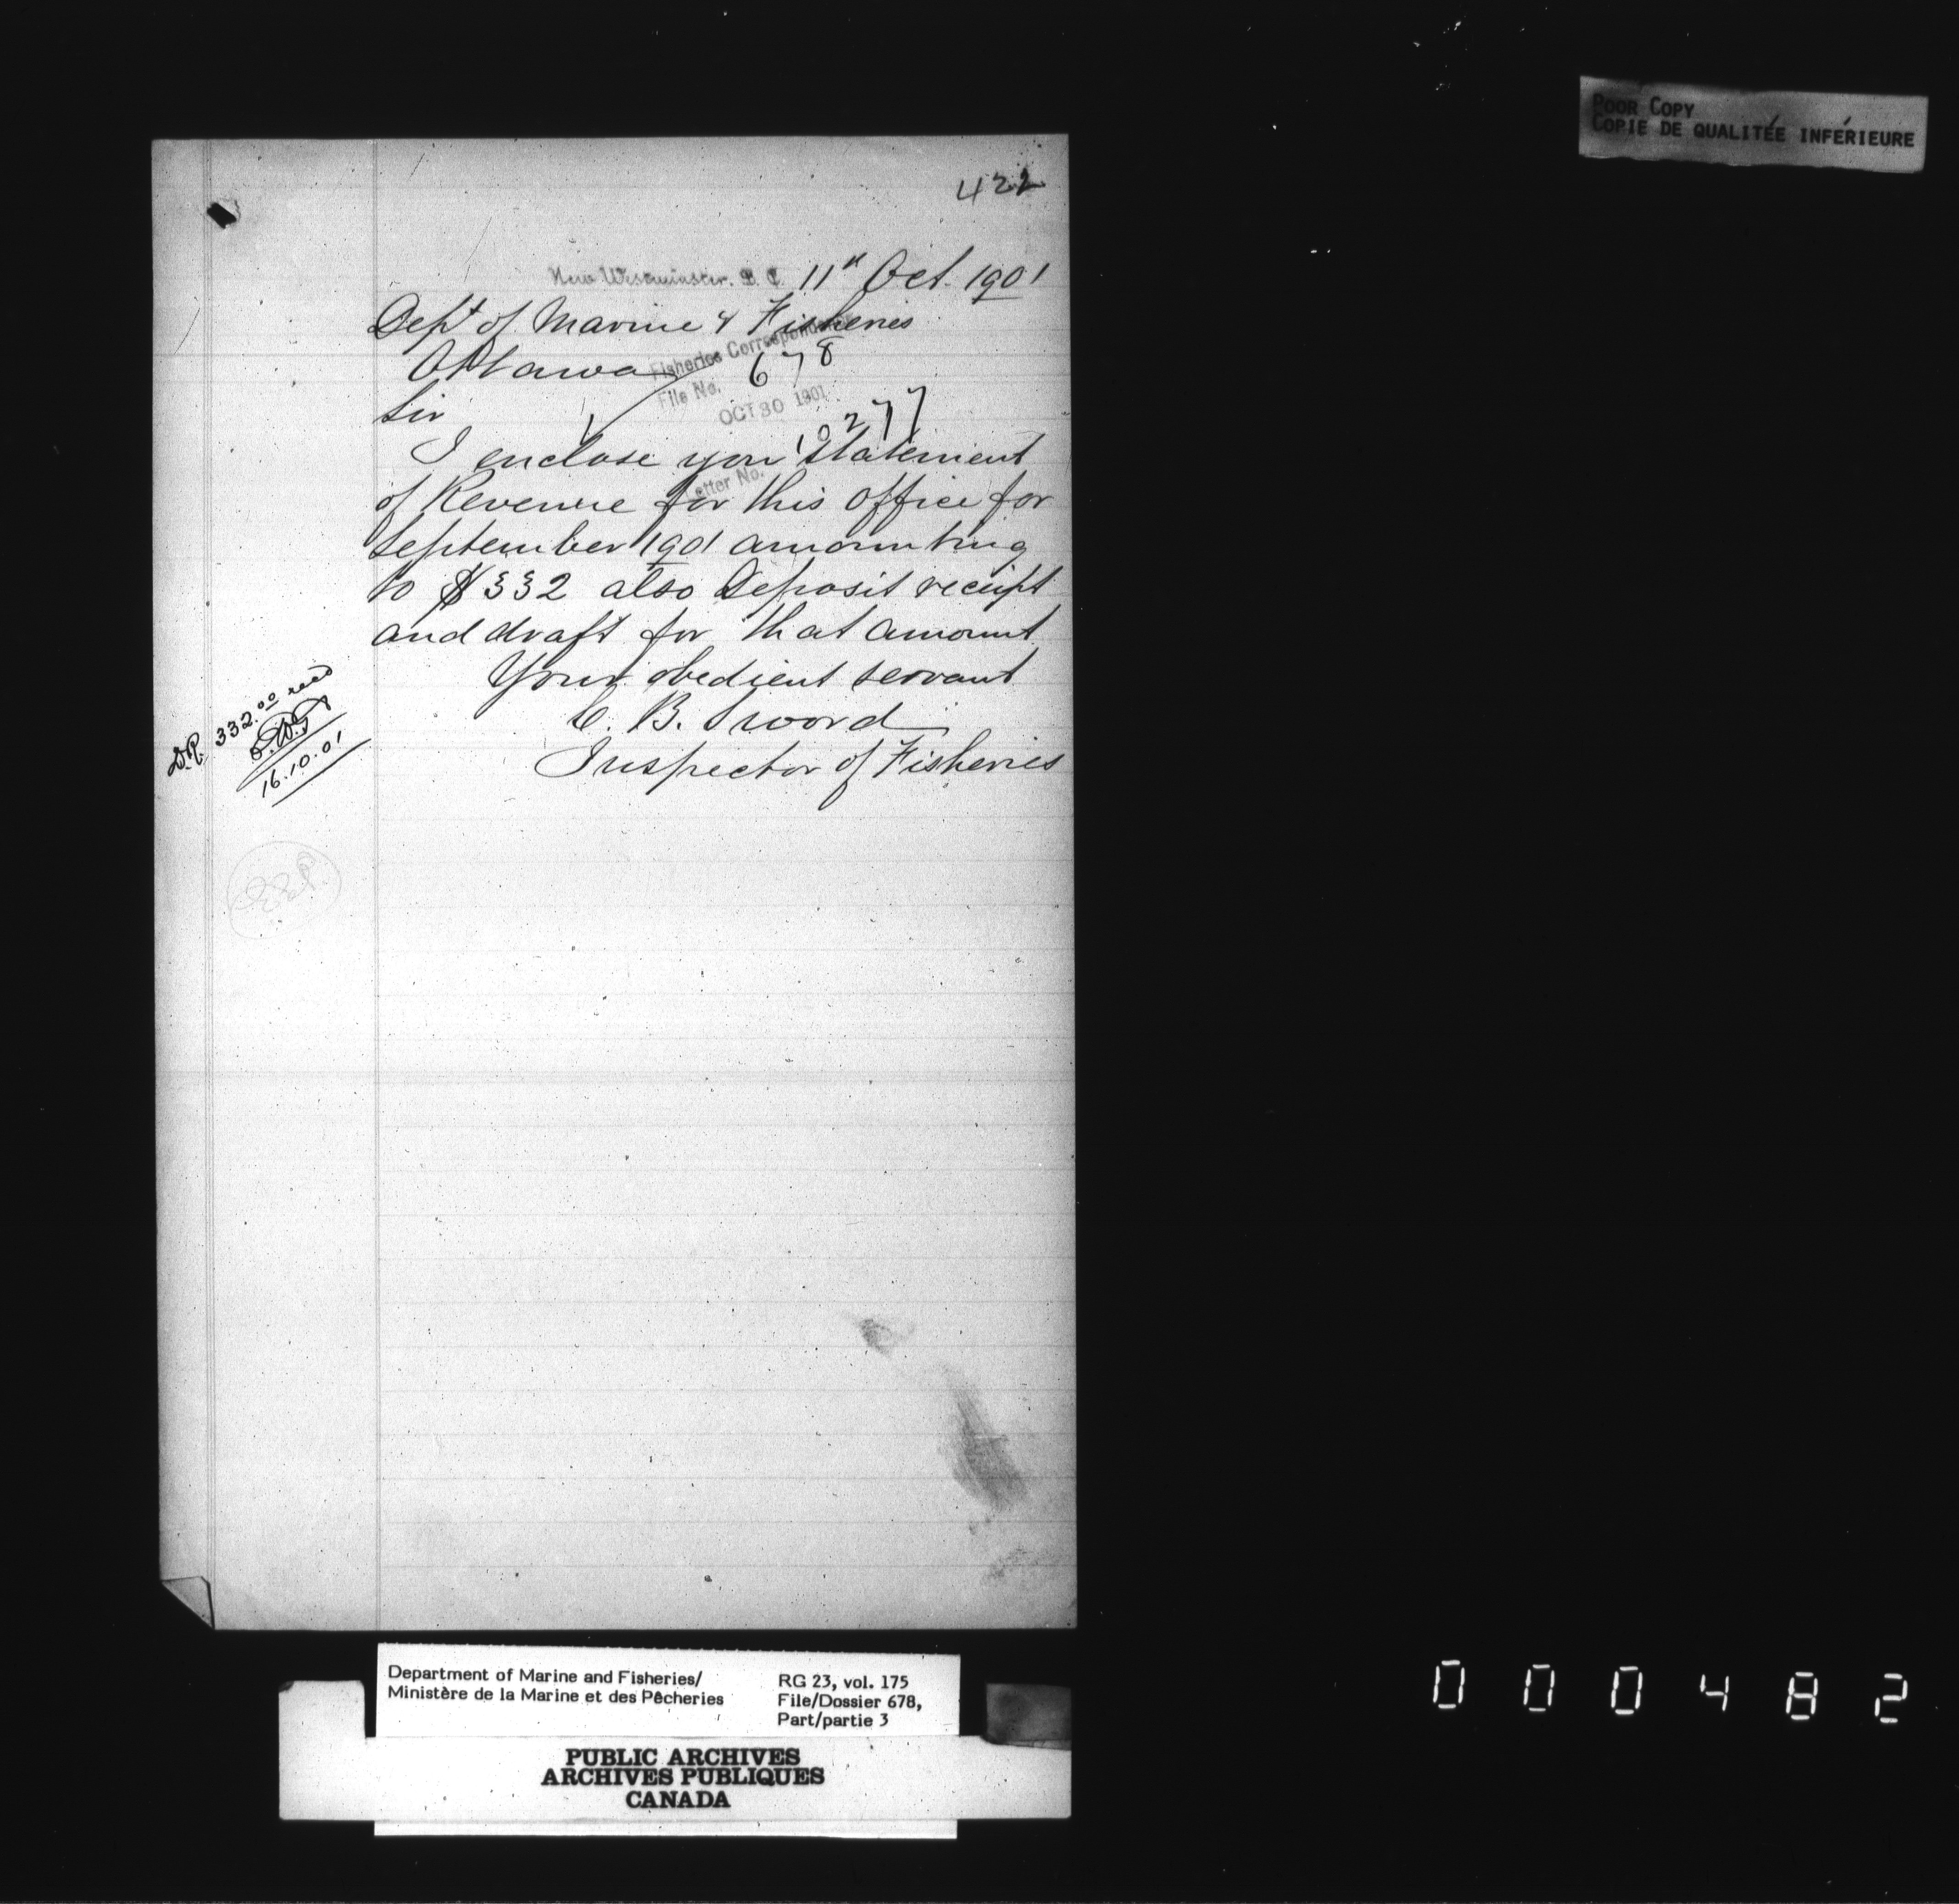 POOR COPY
COPIE DE QUALITÉE INFÉRIEURE
422
New Westminster. B. C. 11th Oct. 1901
Dept of Marine & Fisheries
Ottawa
Fisheries Correspondence
File No. 678
OCT 30 1901
10277
Letter No.
Sir
I enclose you statement
of Revenue for this office for
September 1901 amounting
to $332 also Deposit receipt
and draft for that amount
Your obedient servant
C. B. Sword
Inspector of Fisheries
D.R. 332.00 recd
16.10.01
Department of Marine and Fisheries/
Ministère de la Marine et des Pêcheries
RG 23, vol. 175
File/Dossier 678,
Part/partie 3
PUBLIC ARCHIVES
ARCHIVES PUBLIQUES
CANADA
000482